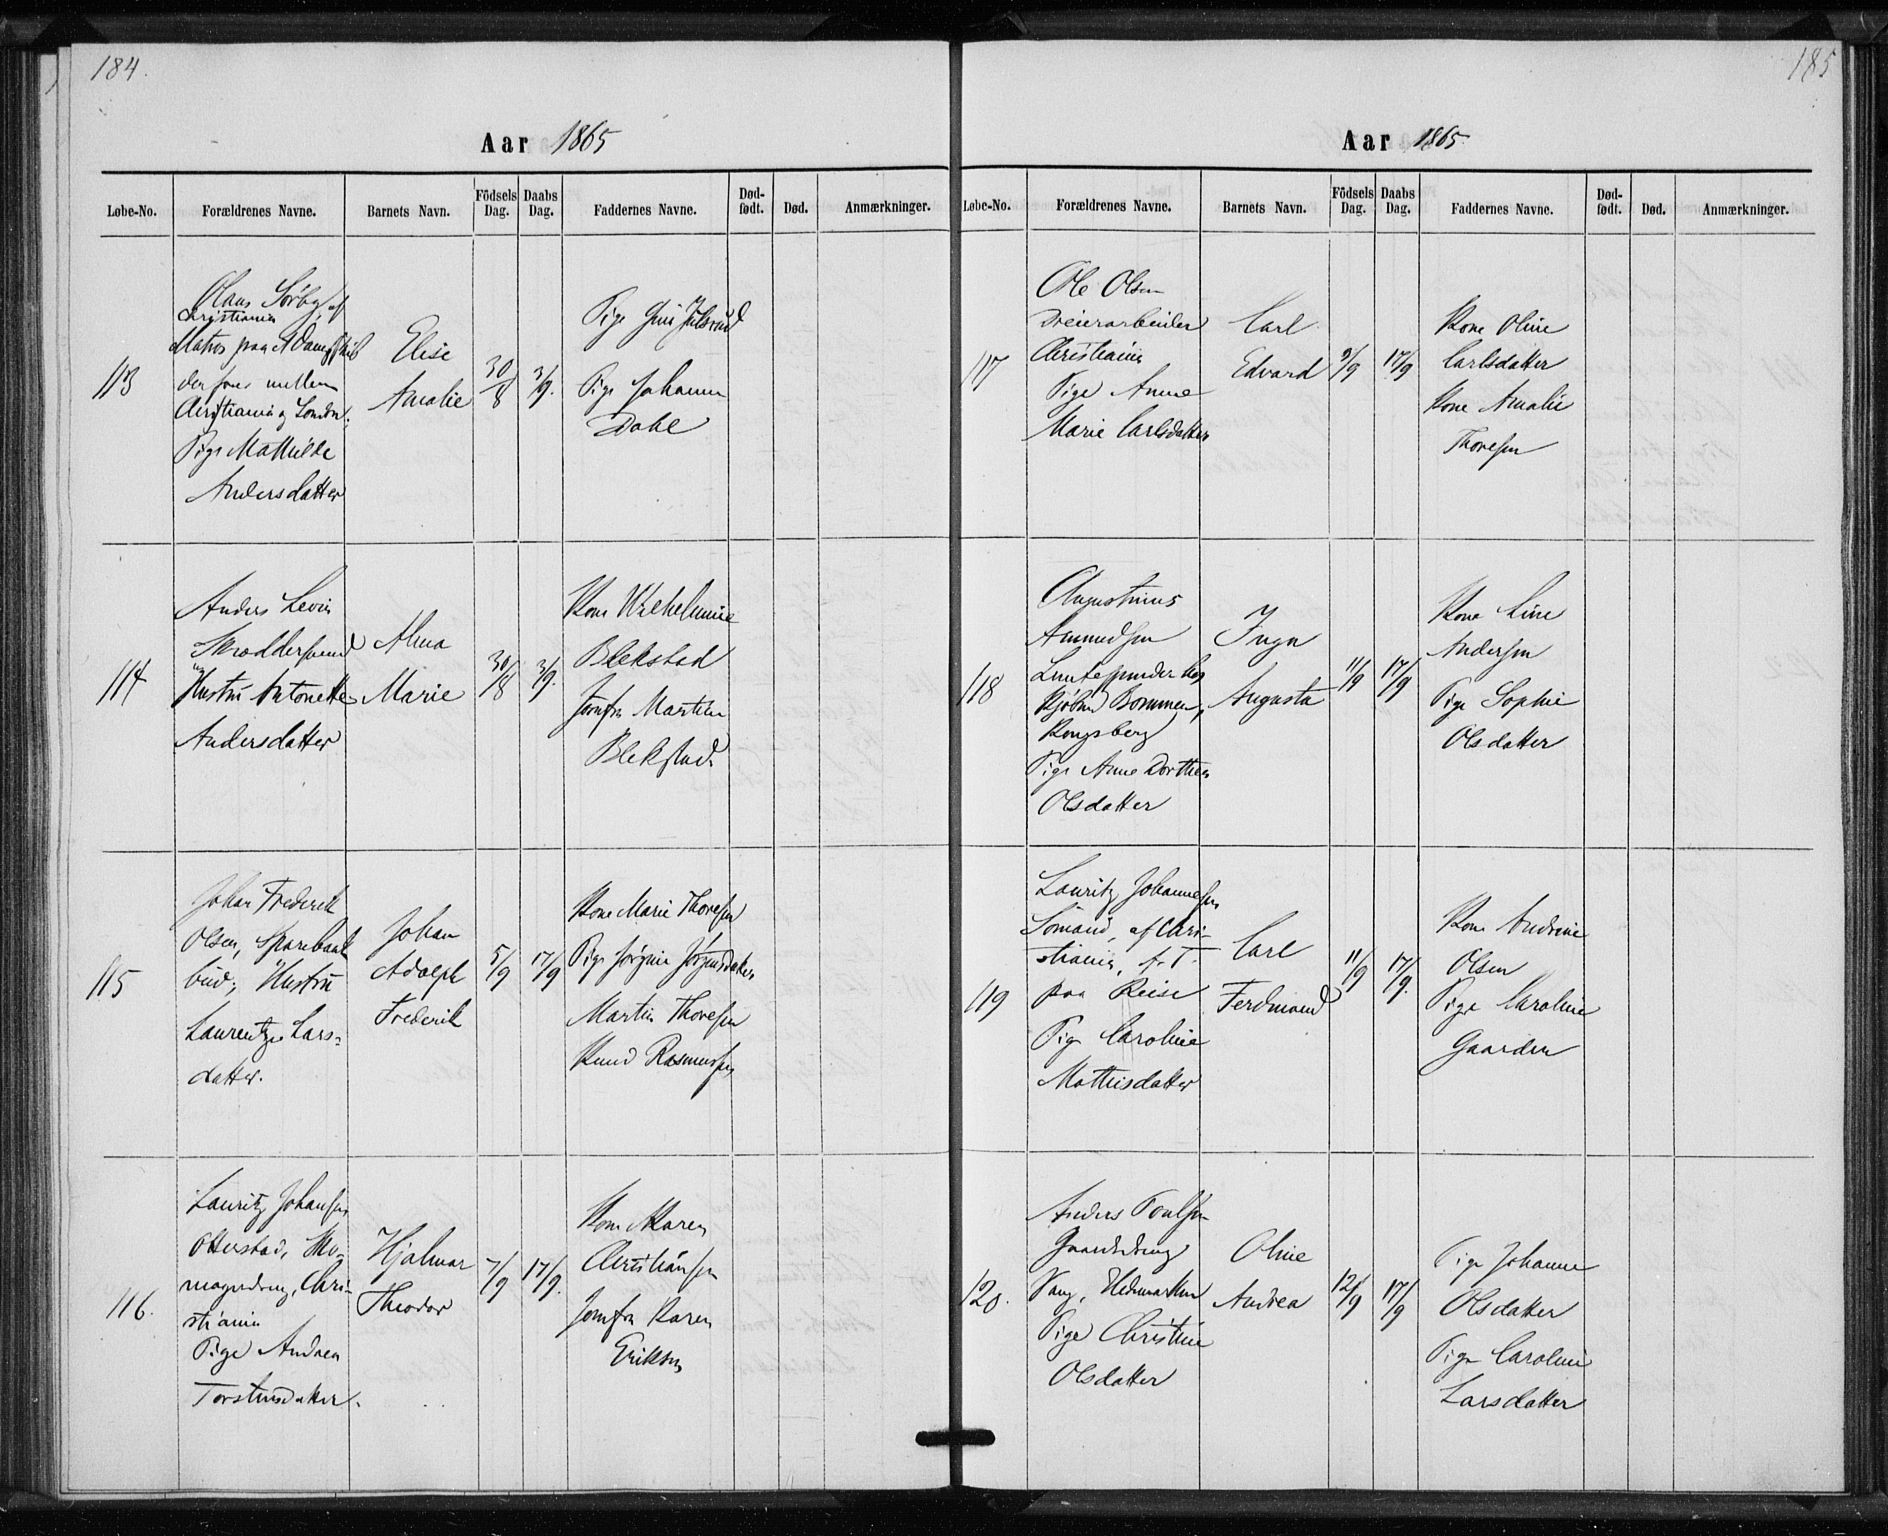 184.
Aar 1865
Løbe-No. Forældrenes Navne. Barnets Navn. Födsels Dag. Daabs Dag. Faddernes Navne. Død-født. Død. Anmærkninger.
113
Olaus Sørby, af
Christiania
Matros paa et Dampskib
der farer mellem
Christiania og London.
Pige Mathilde
Andersdatter
Elise
Amalie
30/8
3/9.
Pige Julsrud
Pige Johanne
Dahl
114
Anders Levin
Skræddersvend
og Hustru Antonette
Andersdatter
Alma
Marie
30/8
3/9.
Kone Wilhelmine
Blekstad
Jomfru Martine
Blekstad.
115
Johan Frederik
Olsen, Sparebank
bud; Hustru
Laurentze Lars-
datter.
Johan
Adolph
Frederik
5/9
17/9
Kone Marie Thoresen
Pige Jørgine Jørgensdatter
Martin Thoresen
Knud Rasmussen
116.
Lauritz Johansen
Otterstad, Sko-
magerdreng, Chri-
stiania
Pige Andrea
Torstensdatter.
Hjalmar
Theodor
7/9
17/9.
Kone Maren
Christiansen
Jomfru Karen
Eriksen
185
Aar 1865
Løbe-No. Forældrenes Navne. Barnets Navn. Födsels Dag. Daabs Dag. Faddernes Navne. Død-født. Død. Anmærkninger.
117
Ole Olsen
Dreierarbeider
Christiania
Pige Anne
Marie Carlsdatter
Carl
Edvard
9/9
17/9
Kone Oline
Carlsdatter
Kone Amalie
Thoresen
118
Augustinus
Ammundsen
hos
Kjøbmd Bommen,
Kongsberg
Pige Anne Dorthea
Olsdatter
Inga
Augusta
11/9
17/9
Kone Line
Andersen
Pige Sophie
Olsdatter
119
Lauritz Johannesen
Sömand, af Chri-
stiania, f. T.
paa Reise
Pige Caroline
Mathisdatter
Carl
Ferdinand
11/9
17/9.
Kone Andrine
Olsen
Pige Caroline
Gaarden
120.
Anders Poulsen
Gaardsdreng
Vang, Hedemarken
Pige Christine
Olsdatter
Oline
Andrea
12/9
17/9
Pige Johanne
Olsdatter
Pige Caroline
Larsdatter